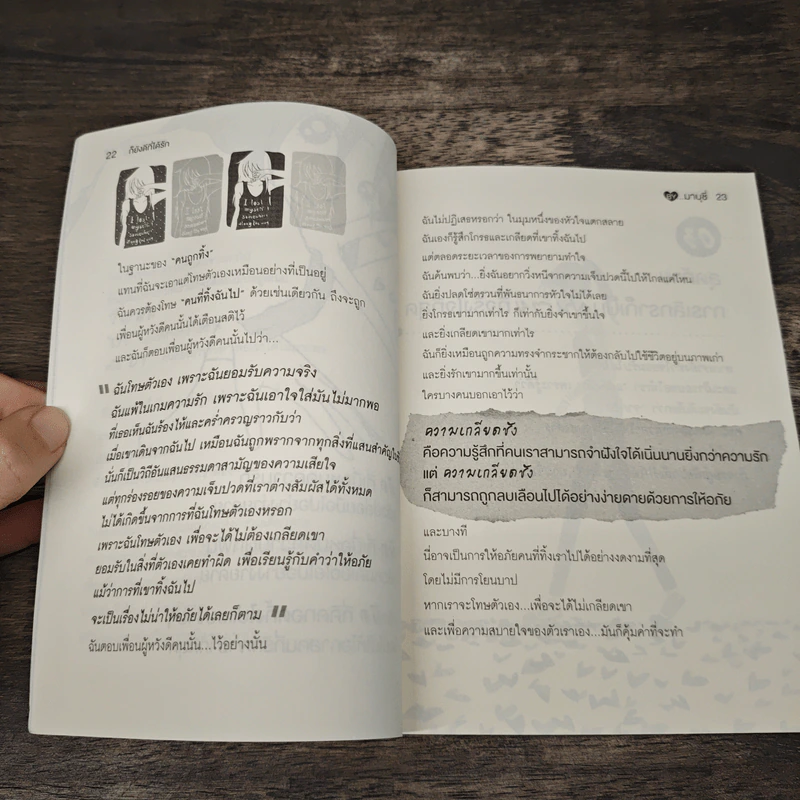 22 ก็ยังดีที่ได้รัก
I lost
myself
somewhere
along the way
I lost
myself
somewhere
along the way
ในฐานะของ “คนถูกทิ้ง”
แทนที่ฉันจะเอาแต่โทษตัวเองเหมือนอย่างที่เป็นอยู่
ฉันควรต้องโทษ “คนที่ทิ้งฉันไป” ด้วยเช่นเดียวกัน ถึงจะถูก
เพื่อนผู้หวังดีคนนั้นได้เตือนสติไว้
และฉันก็ตอบเพื่อนผู้หวังดีคนนั้นไปว่า...
“ ฉันโทษตัวเอง เพราะฉันยอมรับความจริง
ฉันแพ้ในเกมความรัก เพราะฉันเอาใจใส่มันไม่มากพอ
ที่เธอเห็นฉันร้องไห้และคร่ำครวญราวกับว่า
เมื่อเขาเดินจากฉันไป เหมือนฉันถูกพรากจากทุกสิ่งที่แสนสำคัญในชีวิต
นั่นก็เป็นวิถีอันแสนธรรมดาสามัญของความเสียใจ
แต่ทุกร่องรอยของความเจ็บปวดที่เราต่างสัมผัสได้ทั้งหมด
ไม่ได้เกิดขึ้นจากการที่ฉันโทษตัวเองหรอก
เพราะฉันโทษตัวเอง เพื่อจะได้ไม่ต้องเกลียดเขา
ยอมรับในสิ่งที่ตัวเองเคยทำผิด เพื่อเรียนรู้กับคำว่าให้อภัย
แม้ว่าการที่เขาทิ้งฉันไป
จะเป็นเรื่องไม่น่าให้อภัยได้เลยก็ตาม ”
ฉันตอบเพื่อนผู้หวังดีคนนั้น...ไว้อย่างนั้น
...บานุชี่ 23
ฉันไม่ปฏิเสธหรอกว่า ในมุมหนึ่งของหัวใจแตกสลาย
ฉันเองก็รู้สึกโกรธและเกลียดที่เขาทิ้งฉันไป
แต่ตลอดระยะเวลาของการพยายามทำใจ
ฉันค้นพบว่า...ยิ่งฉันอยากวิ่งหนีจากความเจ็บปวดนี้ไปให้ไกลแค่ไหน
ฉันยิ่งปลดโซ่ตรวนที่พันธนาการหัวใจไม่ได้เลย
ยิ่งโกรธเขามากเท่าไร ก็เท่ากับยิ่งจำเขาขึ้นใจ
และยิ่งเกลียดเขามากเท่าไร
ฉันก็ยิ่งเหมือนถูกความทรงจำกระชากให้ต้องกลับไปใช้ชีวิตอยู่บนภาพเก่า
และยิ่งรักเขามากขึ้นเท่านั้น
ใครบางคนบอกเอาไว้ว่า
ความเกลียดชัง
คือความรู้สึกที่คนเราสามารถจำฝังใจได้เนิ่นนานยิ่งกว่าความรัก
แต่ ความเกลียดชัง
ก็สามารถถูกลบเลือนไปได้อย่างง่ายดายด้วยการให้อภัย
และบางที
นี่อาจเป็นการให้อภัยคนที่ทิ้งเราไปได้อย่างงดงามที่สุด
โดยไม่มีการโยนบาป
หากเราจะโทษตัวเอง...เพื่อจะได้ไม่เกลียดเขา
และเพื่อความสบายใจของตัวเราเอง...มันก็คุ้มค่าที่จะทำ